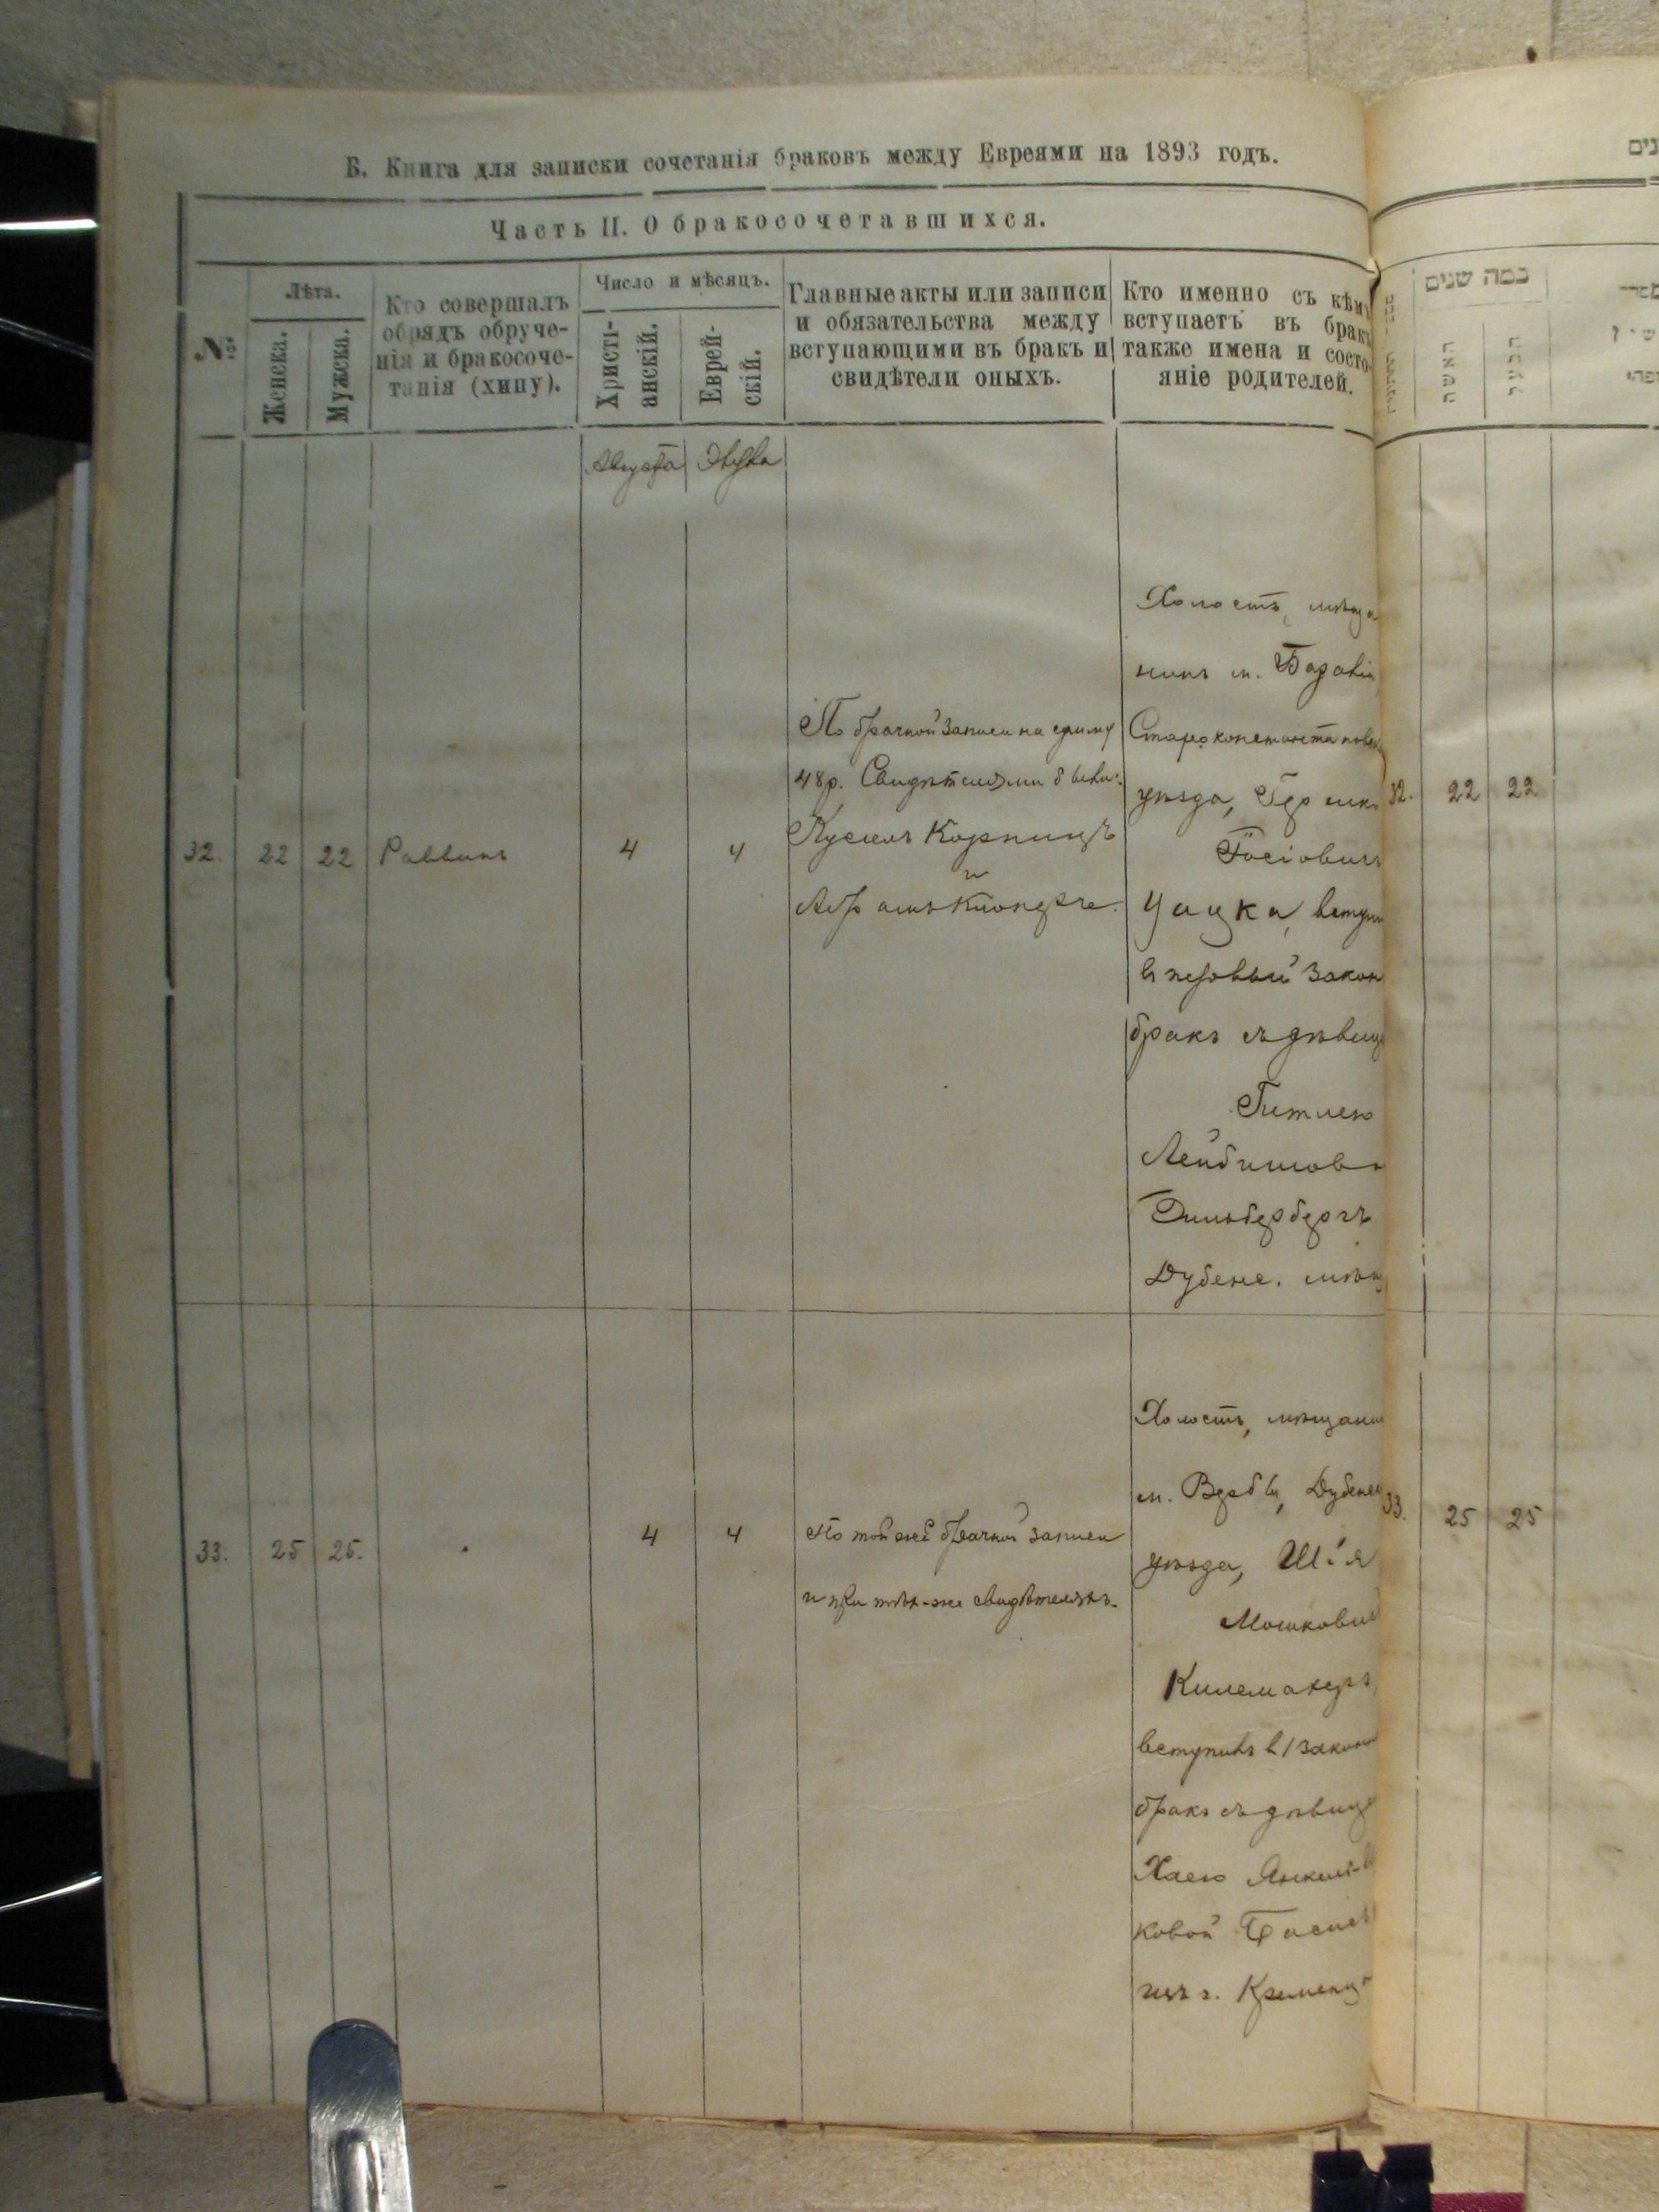 Б. Книга для записки сочетанія браковъ между Евреями на 1893 годъ.
Часть II. О бракосочетавшихся.
№
Лѣта.
Женска.
Мужска.
Кто совершалъ
обрядъ обруче-
нія и бракосоче-
танія (хипу).
Число и мѣсяцъ.
Христі-
анскій.
Еврей-
скій.
Главные акты или записи
и обязательства между
вступающими въ бракъ и
свидѣтели оныхъ.
Кто именно съ кѣмъ
вступаетъ въ бракъ
также имена и состо-
яніе родителей.
Августа Элула
32. 22 22 Раввинъ 4 4
По брачной записи на сумму
48 р. Свидѣтелями были:
и
Холостъ, мѣща
нинъ м.
Староконстантинов
уѣзда,
Іосіовичъ
вступи
в первый закон
бракъ съ дѣвице
Гитлею
Лейбишов
Зильбербергъ
Дубенс. мѣщ
33. 25 25. 4 4
По той же брачной записи
и при тѣхъ-же свидѣтеляхъ.
Холостъ, мѣщанин
м. Дубенск
уѣзда, Шія
Мошкович
вступилъ в 1 законн
бракъ съ дѣвице
Хаею
ковой
г. Кременца
כמה שנים
האשה
32. 22 22
33. 25 25